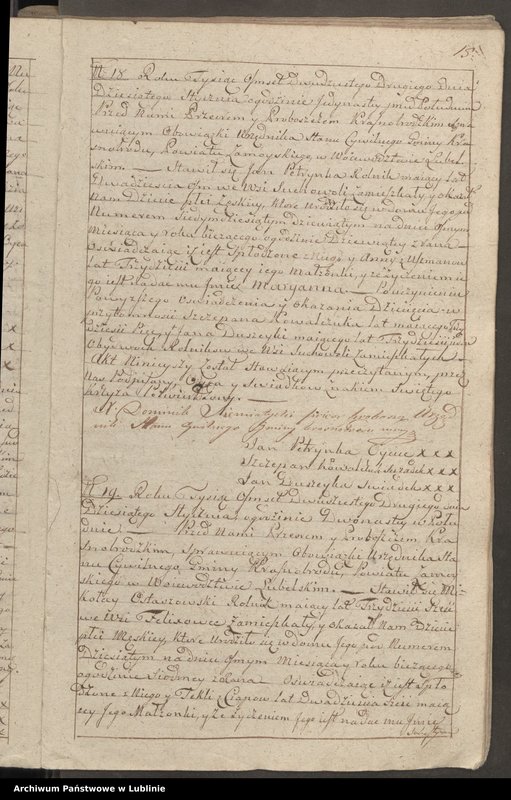 15.
N. 18. Roku Tysiąc Ośmset Dwudziestego Drugiego dnia
Dziesiątego Stycznia o godzinie Jedynastey przed Południem
Przed Nami Przeorem y Proboszczem Krasnobrodzkim Spra-
wuiącym Obowiązki Urzędnika Stanu Cywilnego Gminy Kra
snobrodu, Powiatu Zamoyskiego, w Woiewodztwie Lubel-
skim. — Stawił się Jan Petrynka Rolnik maiący lat
Dwadzieścia Ośm we Wsi Suchowoli zamieszkały y okazał
Nam Dziecie płci Zęńskiy, ktore urodziło się w domu Jego pod
Numerem Siedymdziesiątym dziewiątym na dniu Osmym
Miesiąca y roku bieżącego o godzinie Dziewiątey z rana —
Oswiadczaiąc iż iest Spłodzone z Niego y Anny z Uzmanow
lat Trzydzieści maiącey iego Małżonki, y że życzeniem ie
go iest nadac mu Jmie Maryanna — Po uczynieniu
Powyższego Oswiadczenia y okazania Dziecięcia w
przytomności Szczepana Kowalczuka lat maiącego
Pięć y Jana Duszeyki maiącego lat Trzydzieści
Obydwoch Rolnikow we Wsi Suchowoli zamieszkałych —
Akt Ninieyszy został Stawaiącym przeczytany by przez
Nas Podpisany, Oyca y Swiadkow znakiem Swiętego
Krzyża Potwierdzony. —
X. Dominik Przeor Proboszcz Urzęd
nik Stanu Cywilnego Gminy
Jan Petrynka Oyciec x x x
Szczepan Kowalczuk Swiadek x x x
Jan Duszeyka Swiadek x x x
N. 19. Roku Tysiąc Ośmset Dwudziestego Drugiego dnia
Dziesiątego Stycznia, o godzinie Dwonastey w Połu
dnie — Przed Nami Przeorem y Proboszczem Kra
snobrodzkim, Sprawuiącym Obowiązki Urzędnika Sta
nu Cywilnego Gminy Krasnobrodu, Powiatu Zamoy
skiego w Woiewodztwie Lubelskim. — Stawił się Mi-
kołay Ostaszowski Rolnik maiący lat Trzydzieści Sześć
we Wsi Felixowce zamieszkały, y okazał Nam Dziecie
płci Męskiey, ktore urodziło się w domu Jego pod Numerem
Dziesiątym na dniu Osmym Miesiąca y roku bieżącego
o godzinie Siodmey z Rana — Oswiadczaiąc iż iest Spło
dzone z Niego y Tekli z Cepanow lat Dwadzieścia Sześć maią
cey Jego Małżonki, y że życzeniem Jego iest nadac mu Jmie
Archiwum Państwowe w Lublinie